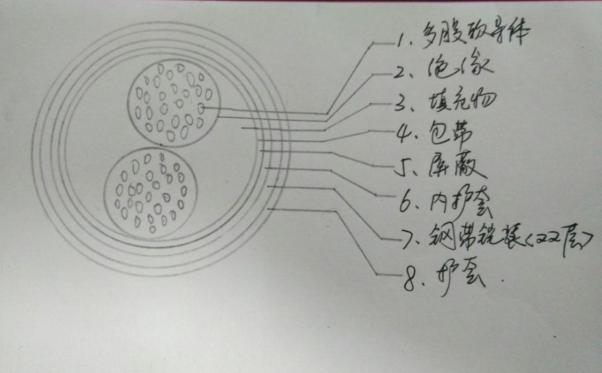 1、多股软导体
2、绝缘
3、填充物
4、包带
5、屏蔽
6、内护套
7、钢带铠装<双层>
8、护套